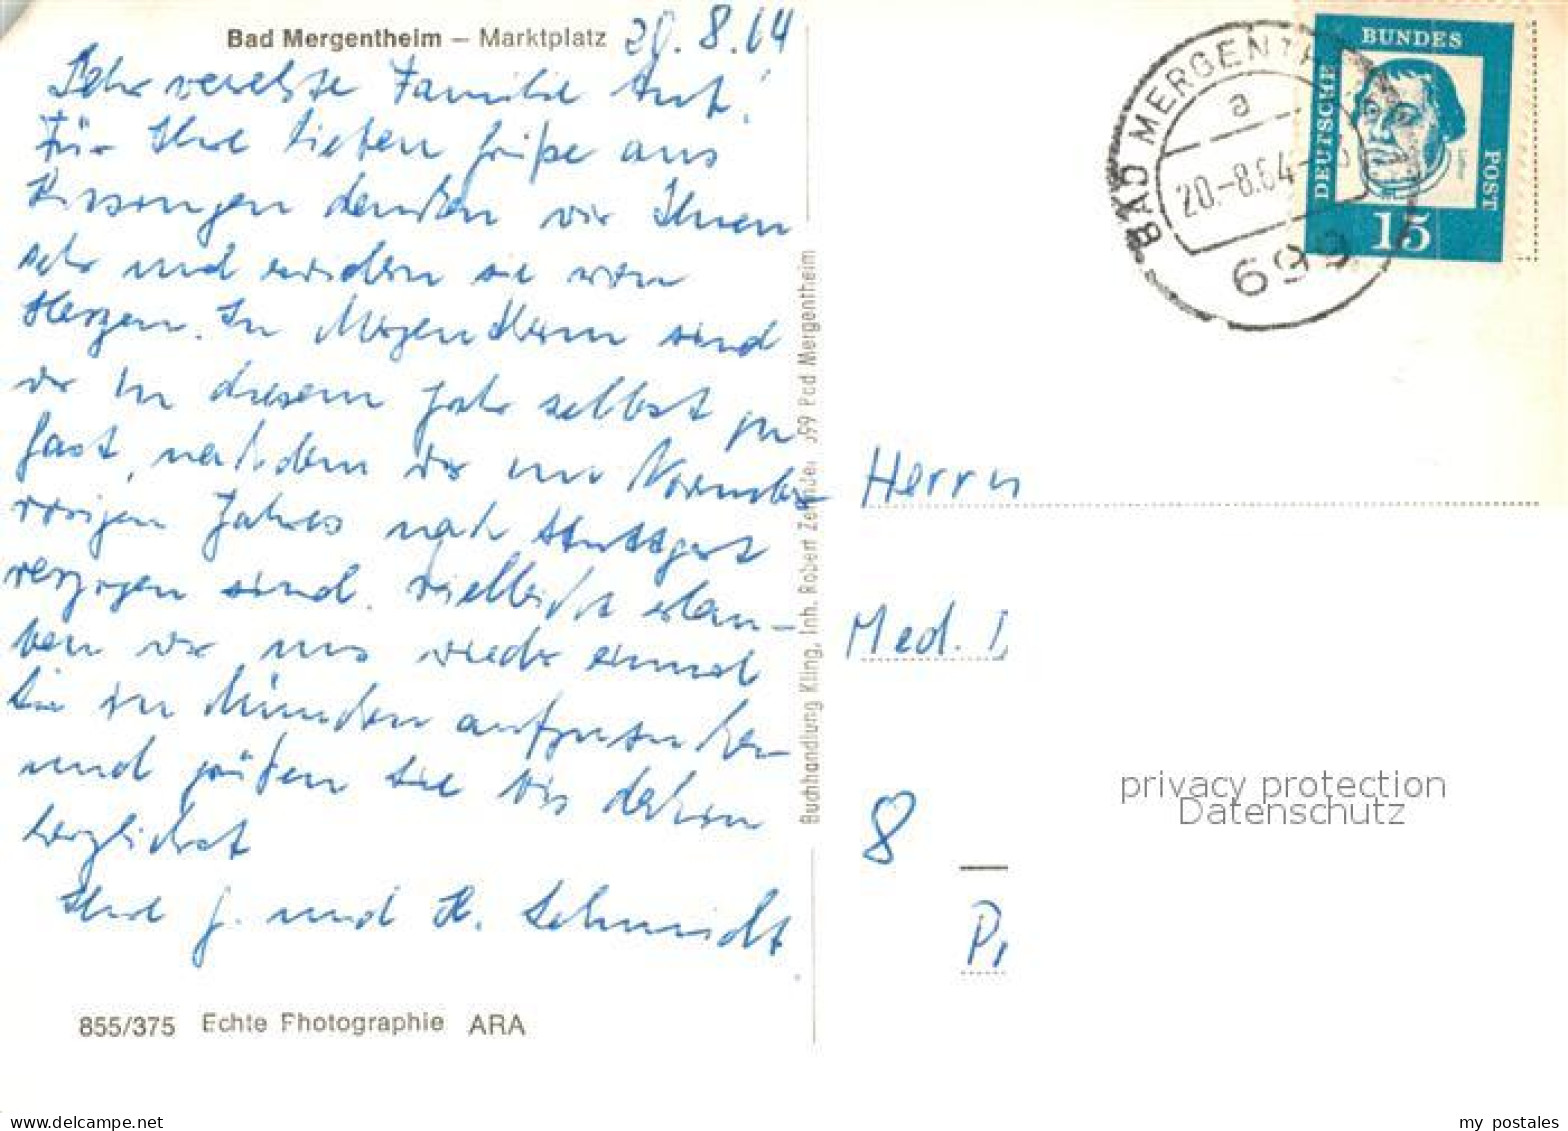 Bad Mergentheim – Marktplatz 20.8.64
Sehr verehrte Familie
Für Ihre lieben Grüße aus
Kissingen danken wir Ihnen
sehr und erwidern sie von
Herzen. In Mergentheim sind
wir in diesem Jahr selbst zu
Gast, nachdem wir im November
vorigen Jahres nach Stuttgart
verzogen sind. Vielleicht erlau-
ben wir uns wieder einmal
Sie in München aufzusuchen
und grüßen Sie bis dahin
herzlichst
Ihre J. und H. Schmidt
855/375 Echte Photographie ARA
Buchhandlung Kling, Inh. Robert Zehnder 699 Bad Mergentheim
BAD MERGENTH
a
20.-8.64
699
DEUTSCHE
BUNDES
POST
15
Herrn
Med.
8
privacy protection
Datenschutz
my postales